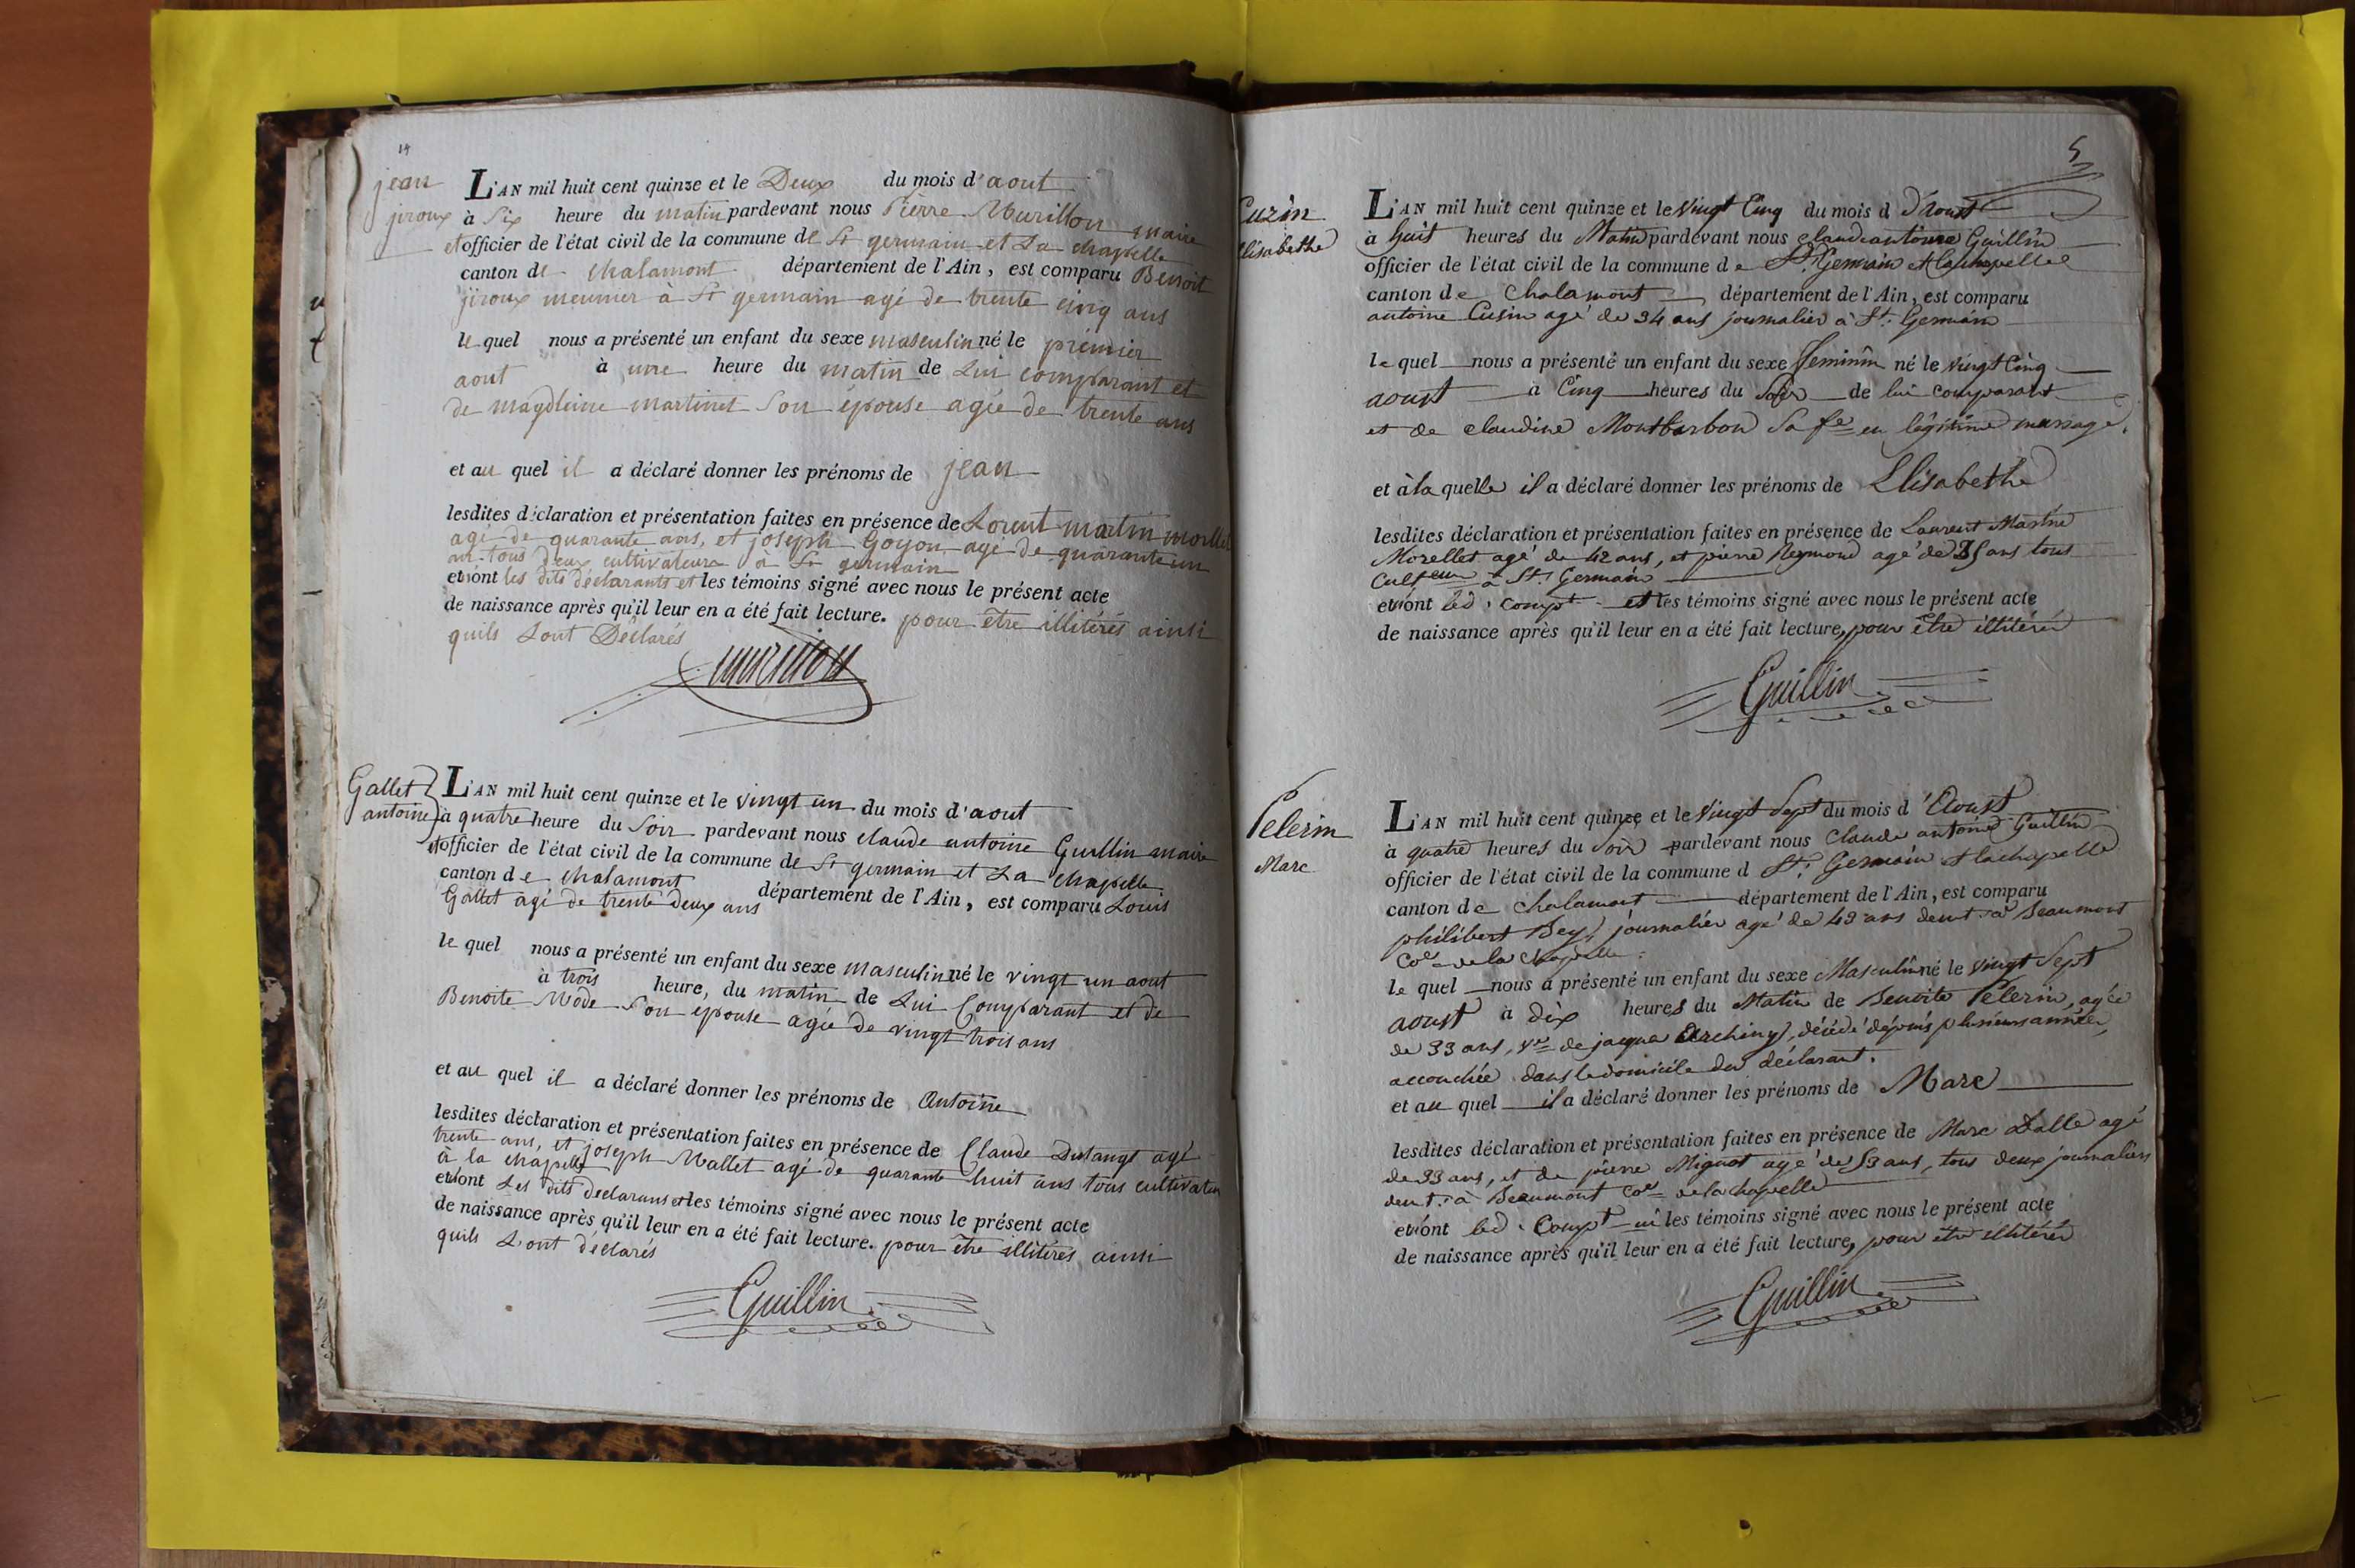 14
jean
jiroux
L'AN mil huit cent quinze et le Deux du mois d'aout
à Six heure du matin pardevant nous Pierre Murillon maire
et officier de l'état civil de la commune de St germain et La chapelle
canton de chalamont département de l'Ain, est comparu Benoit
jiroux meunier à St germain agé de trente cinq ans
le quel nous a présenté un enfant du sexe masculin né le premier
aout à une heure du matin de Lui comparant et
de magdleine martinet Son épouse agée de trente ans
et au quel il a déclaré donner les prénoms de jean
lesdites déclaration et présentation faites en présence de Lorent martin
agé de quarante ans, et joseph Goyon agé de quarante un
an tous deux cultivateurs à St germain
et n'ont les dits déclarants et les témoins signé avec nous le présent acte
de naissance après qu'il leur en a été fait lecture. pour être illitérés ainsi
quils Lont Déclarés
murillon
Gallet
antoine
L'AN mil huit cent quinze et le vingt un du mois d'aout
à quatre heure du Soir pardevant nous claude antoine Guillin maire
et officier de l'état civil de la commune de St germain et La chapelle
canton de chalamont département de l'Ain, est comparu Louis
Gallet agé de trente deux ans
le quel nous a présenté un enfant du sexe masculin né le vingt un aout
à trois heure, du matin de Lui Comparant et de
Benoite Mode Son épouse agée de vingt trois ans
et au quel il a déclaré donner les prénoms de Antoine
lesdites déclaration et présentation faites en présence de Claude agé
trente ans, et joseph Mallet agé de quarante huit ans tous cultivateur
à la chapelle
et n'ont Les dits declarans et les témoins signé avec nous le présent acte
de naissance après qu'il leur en a été fait lecture. pour être illitérés ainsi
quils L'ont déclarés
Guillin
5
Cuzin
Elisabethe
L'AN mil huit cent quinze et le vingt Cinq du mois d D'Aoust
à huit heures du Matin pardevant nous claude antoine Guillin
officier de l'état civil de la commune de St. Germain et lachapelle
canton de Chalamont département de l'Ain, est comparu
antoine Cusin agé de 34 ans journalier à St. Germain
le quel nous a présenté un enfant du sexe feminin né le vingt Cinq
aoust à Cinq heures du Soir de lui comparant
et de claudine Montbarbon Sa fe en légitime mariage.
et à la quelle il a déclaré donner les prénoms de Elisabethe
lesdites déclaration et présentation faites en présence de Laurent Martin
Morellet agé de 42 ans, et pierre Reymond agé de ans tous
Culteurs à St. Germain
et n'ont led. compt et les témoins signé avec nous le présent acte
de naissance après qu'il leur en a été fait lecture, pour être illitérés
Guillin
Pelerin
Marc
L'AN mil huit cent quinze et le vingt Sept du mois d'Aoust
à quatre heures du Soir pardevant nous Claude antoine Guillin
officier de l'état civil de la commune d St. Germain et lachapelle
canton de Chalamont département de l'Ain, est comparu
philibert Bey, journalier agé de 43 ans demt. à Beaumont
Coe de la chapelle.
le quel nous a présenté un enfant du sexe Masculin né le vingt Sept
aoust à dix heures du Matin de Benoite Pelerin, agée
de 33 ans, ve de jacque, décédé depuis plusieurs années,
accouchée dans le domicile du déclarant.
et au quel il a déclaré donner les prénoms de Marc
lesdites déclaration et présentation faites en présence de Marc agé
de 33 ans, et de pierre Mignot agé de 53 ans, tous deux journaliers
demt. à Beaumont Coe de la chapelle
et n'ont led. Compt ni les témoins signé avec nous le présent acte
de naissance après qu'il leur en a été fait lecture, pour être illitérés
Guillin